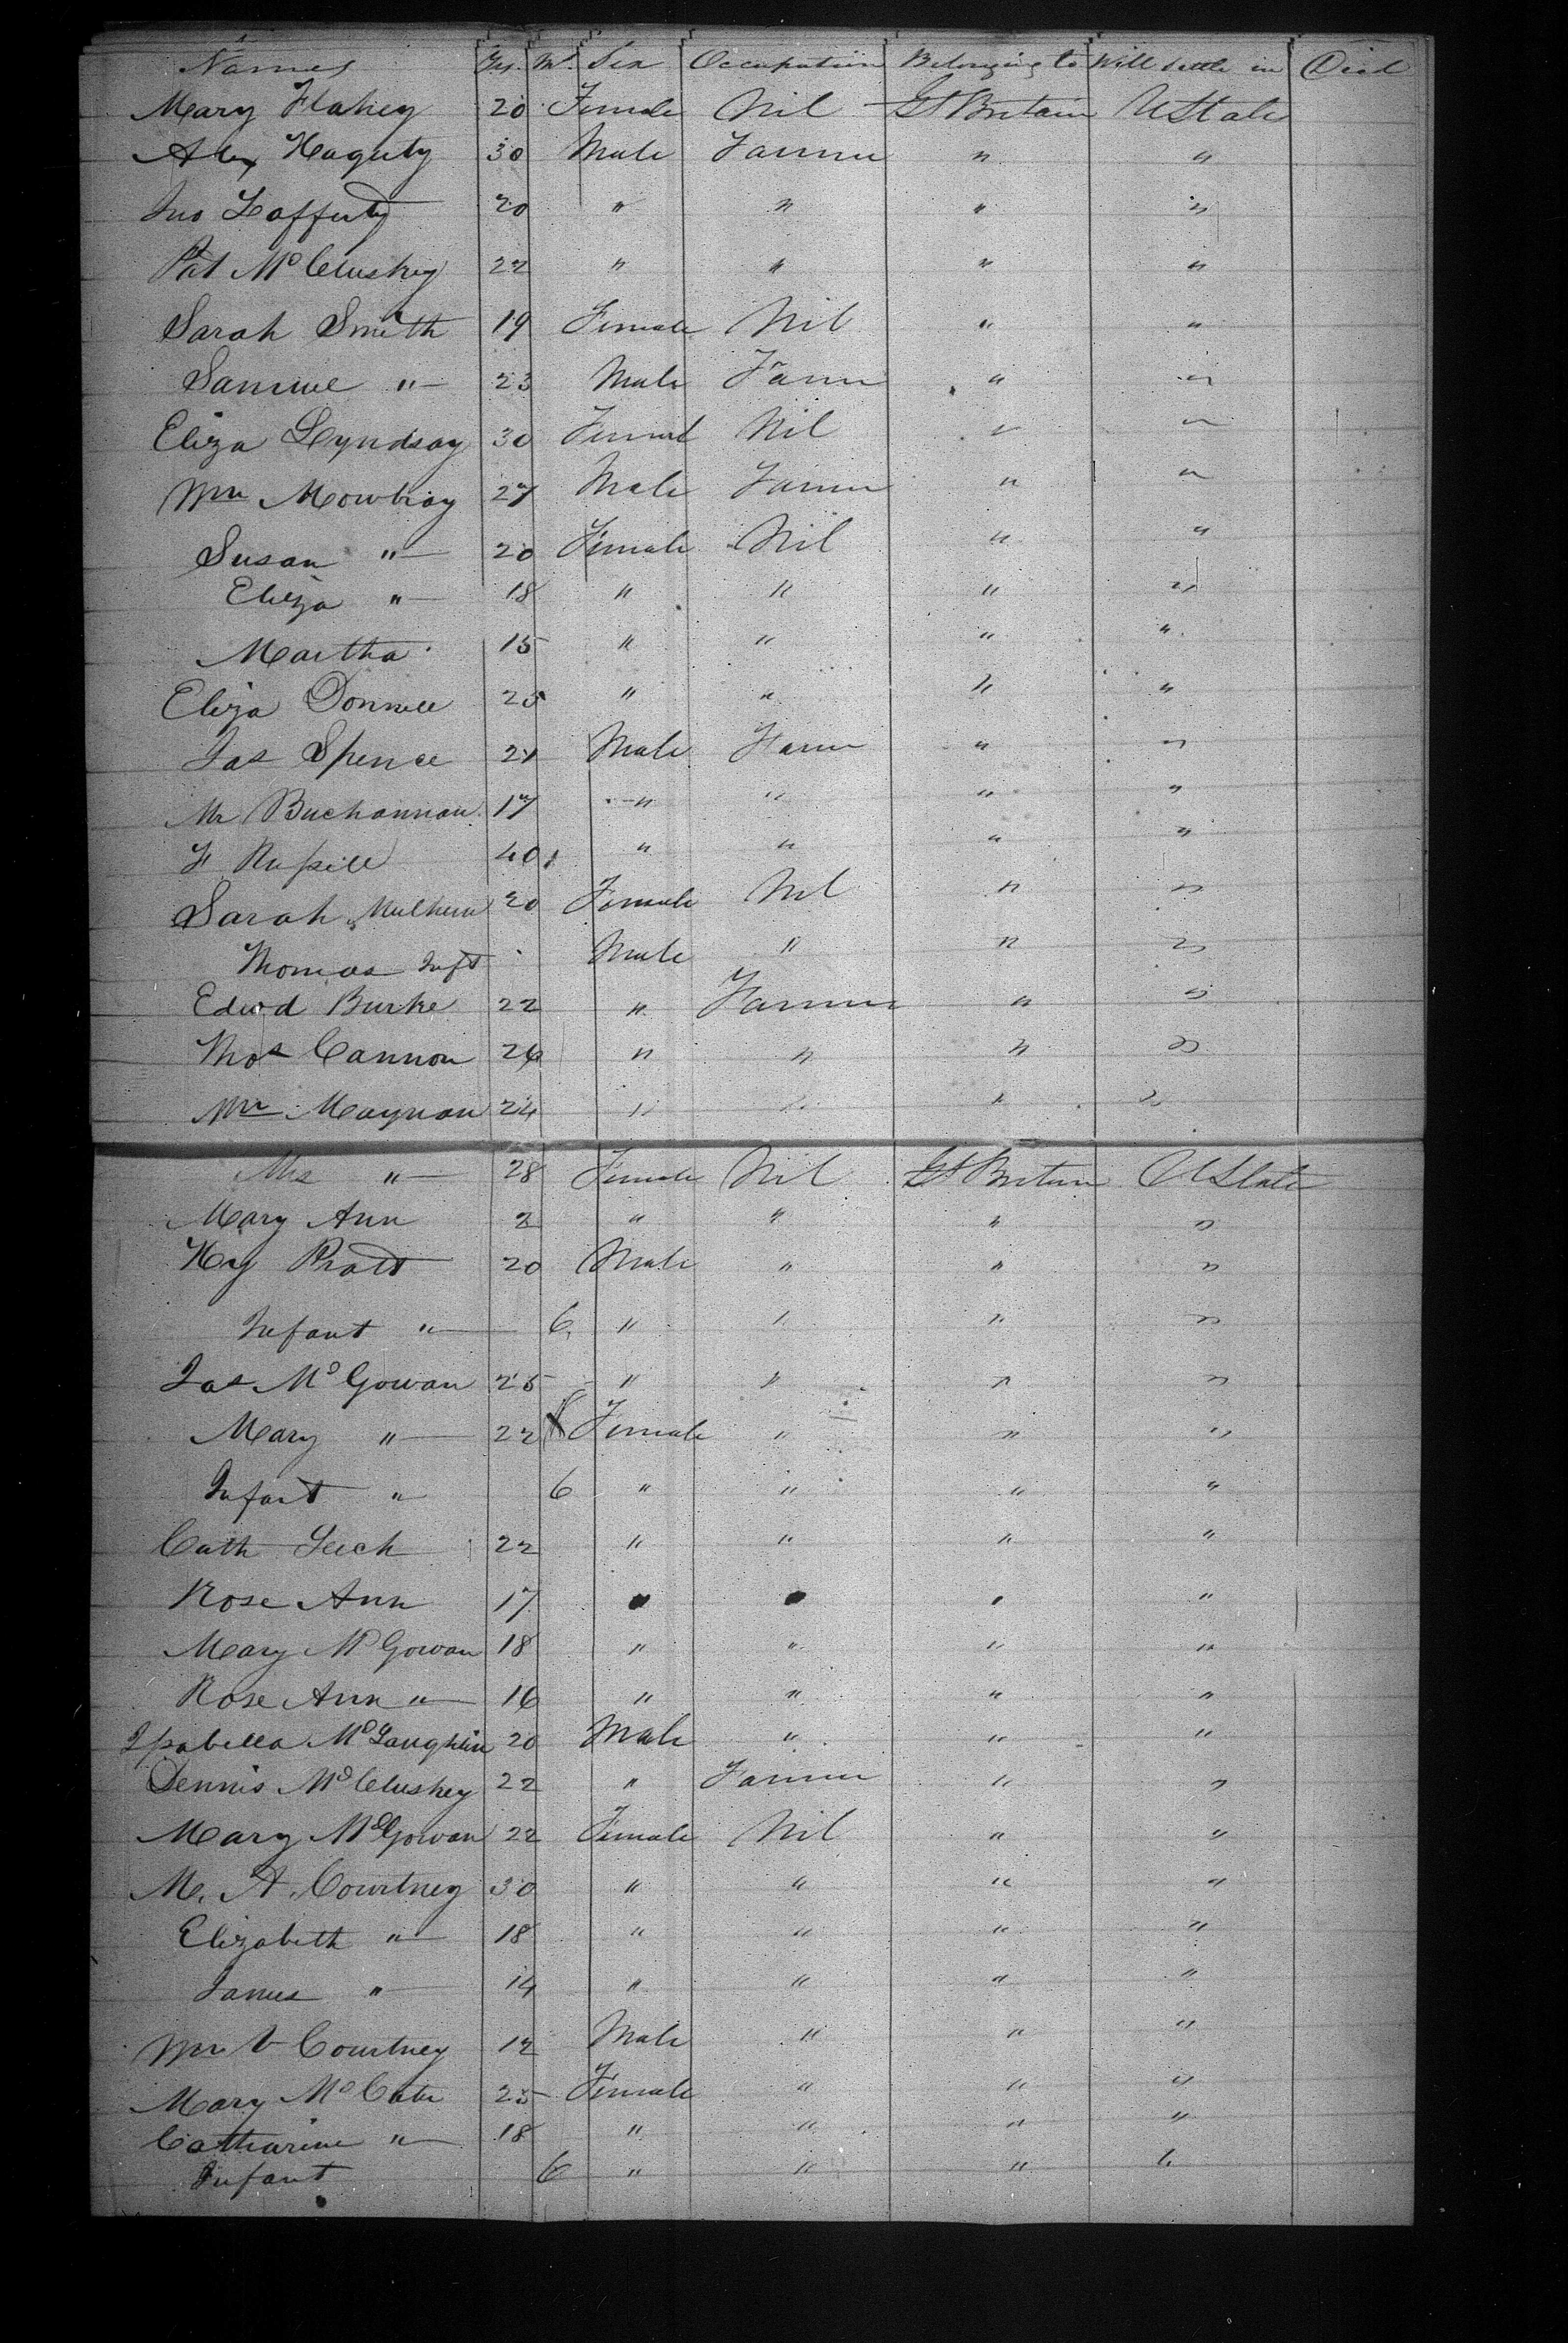 Names Yrs. Ms. Sex Occupation Belonging to Will settle in Died
Mary Flahey 20 Female Nil Gt Britain U State
Alex Hagerty 30 Male Farmer " "
Jno Lafferty 20 " " " "
Pat McCluskey 22 " " " "
Sarah Smith 19 Female Nil " "
Samuel " 23 Male Farmr " "
Eliza Lyndsay 30 Femal Nil " "
Wm Mowbray 27 Male Farmr " "
Susan " 20 Female Nil " "
Eliza " 18 " " " "
Martha 15 " " " "
Eliza Donnell 25 " " " "
Jas Spence 21 Male Farmr " "
Buchannan 17 " " " "
Russell 40 " " " "
Sarah Mulhern 20 Female Nil " "
Thomas Inft Male " " "
Edwd Burke 22 " Farmer " "
Thos Cannon 26 " " " "
Wm 24 " " " "
Mrs " 28 Female Nil Gt Britain U State
Mary Ann 2 " " " "
Hy Pratt 20 Male " " "
Infant " 6 " " " "
Jas McGowan 25 " " " "
Mary " 22 Female " " "
Infant " 6 " " " "
Cath Leech 22 " " " "
Rose Ann 17 " " " "
Mary McGowan 18 " " " "
Rose Ann " 16 " " " "
Issabella McLaughlin 20 Male " " "
Dennis McCluskey 22 " Farmer " "
Mary McGowan 22 Female Nil " "
M. A. Courtney 30 " " " "
Elizabeth " 18 " " " "
James " 14 " " " "
Wm Courtney 12 Male " " "
Mary McCabe 25 Female " " "
Catharine " 18 " " " "
Infant 6 " " " "